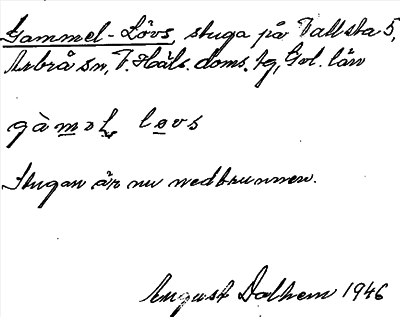 Gammel-Lövs, stuga på Tallsta 5,
Arbrå sn, V. Häls. doms. tg, Gvl. län
gàməl lövs
Stugan är nu nedbrunnen.
August Dalhem 1946